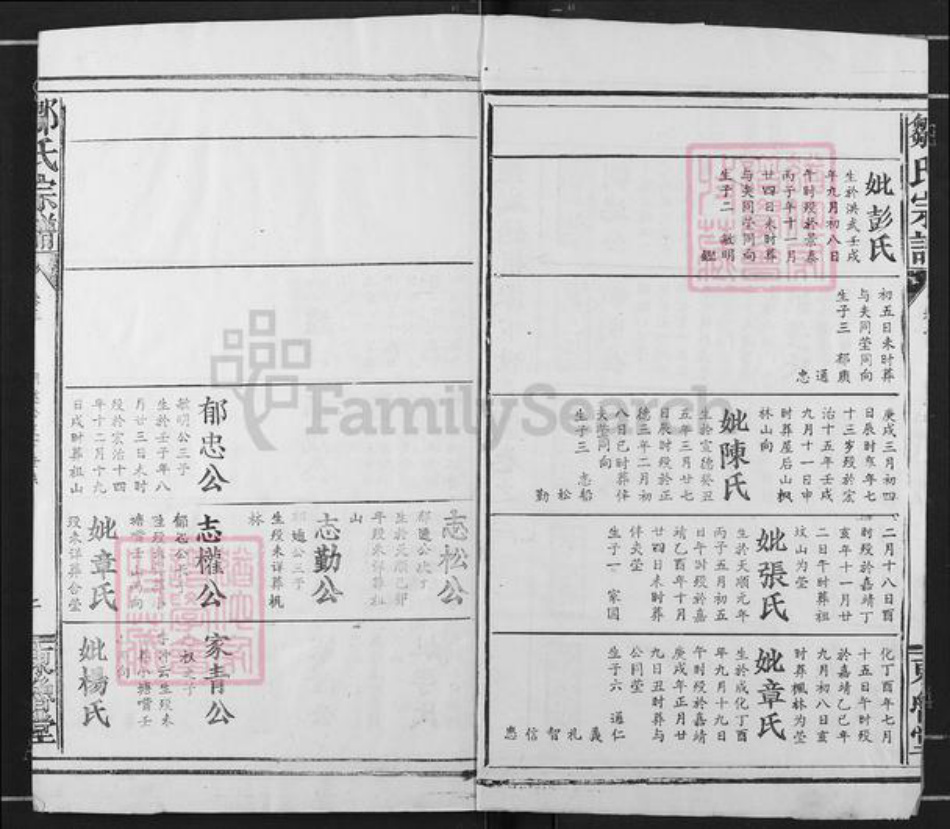 鄒氏宗譜
妣彭氏
生於洪武壬戌
年九月初八日
午时殁於景泰
丙子年十一月
廿四日未时葬
与夫同塋同向
生子二 敏明
鑑
初五日未时葬
与夫同塋同向
生子三 郁颙
通
忠
庚戌三月初四
日辰时年七
十三岁殁於宏
治十五年壬戌
九月十一日申
时葬屋后山枫
林山向
妣陳氏
生於宣德癸丑
五年三月廿七
日辰时殁於正
德三年二月初
八日巳时葬伴
夫塋同向
生子三 志船
松
勤
二月十八日酉
时殁於嘉靖丁
亥年十一月廿
二日午时葬祖
坟山为塋
妣張氏
生於天顺元年
丙子五月初五
日午时殁於嘉
靖乙酉年十月
廿四日未时葬
伴夫塋
生子一 家国
化丁酉年七月
十五日午时殁
於嘉靖乙巳年
九月初八日亥
时葬枫林为塋
妣章氏
生於成化丁酉
年九月十九日
午时殁於嘉靖
庚戌年正月廿
九日丑时葬与
公同塋
生子六 通仁
義
礼
智
信
忠
郁忠公
敏明公三子
生於壬子年八
月廿三日未时
殁於宏治十四
年十二月十九
日戌时葬祖山
志松公
郁通公次子
年殁未详葬祖
山
志勤公
郁通公三子
生殁未详葬枫
林
志權公
郁忠公
妣章氏
殁未详葬合塋
家青公
妣楊氏
鄒氏宗譜